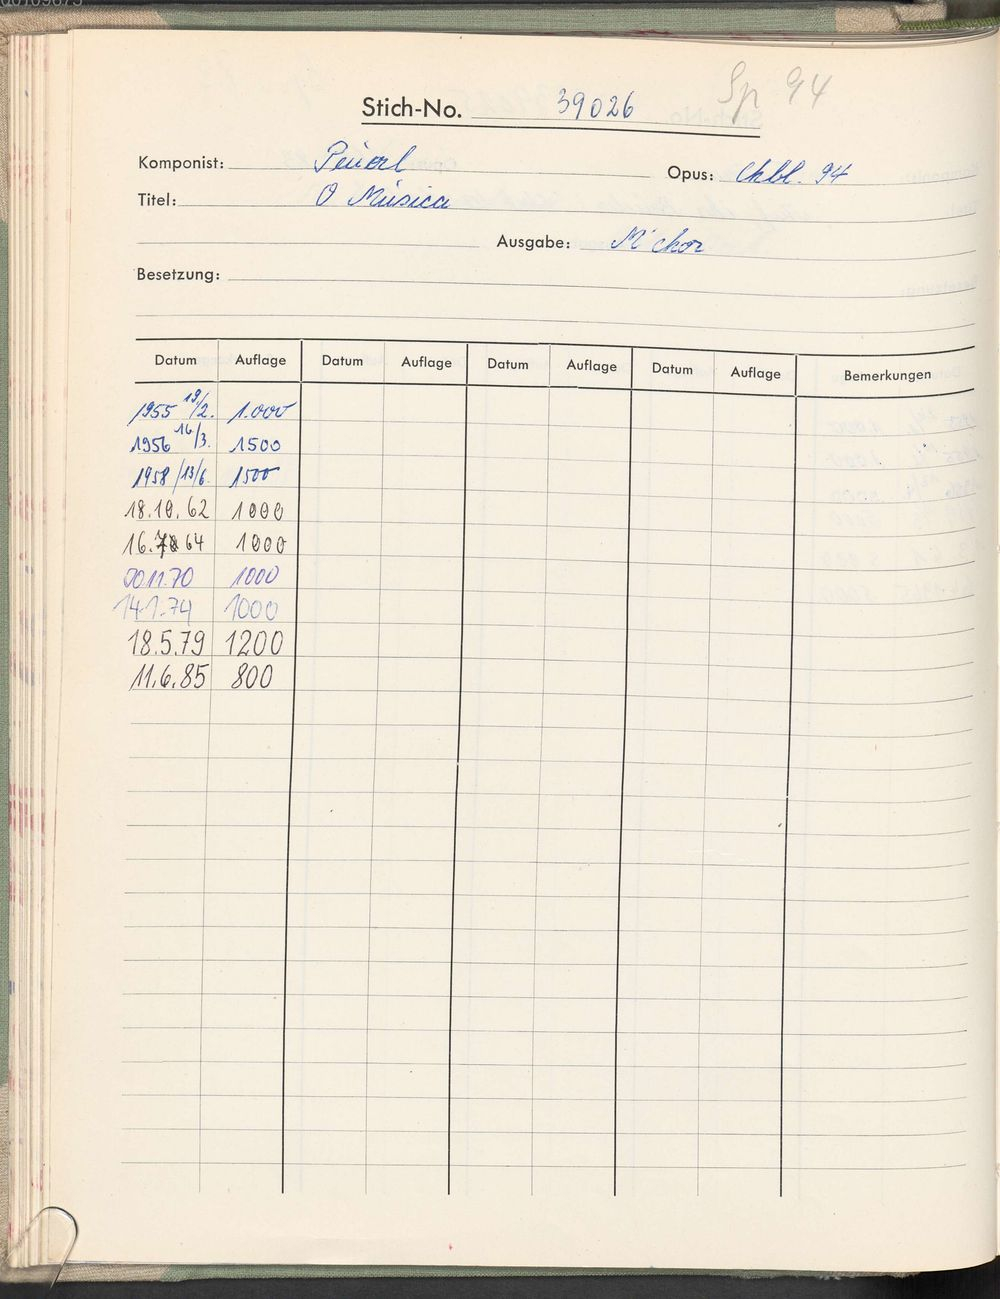 Sp 94
Stich-No. 39026
Komponist: Peuerl Opus: Chbl. 94
Titel: O Musica
Ausgabe: M'chor
Besetzung:
Datum Auflage Datum Auflage Datum Auflage Datum Auflage Bemerkungen
1955 19/2. 1.000
1956 16/3. 1500
1958 /13/6. 1500
18.10.62 1000
16. 64 1000
11.70 1000
14.1.74 1000
18.5.79 1200
11.6.85 800